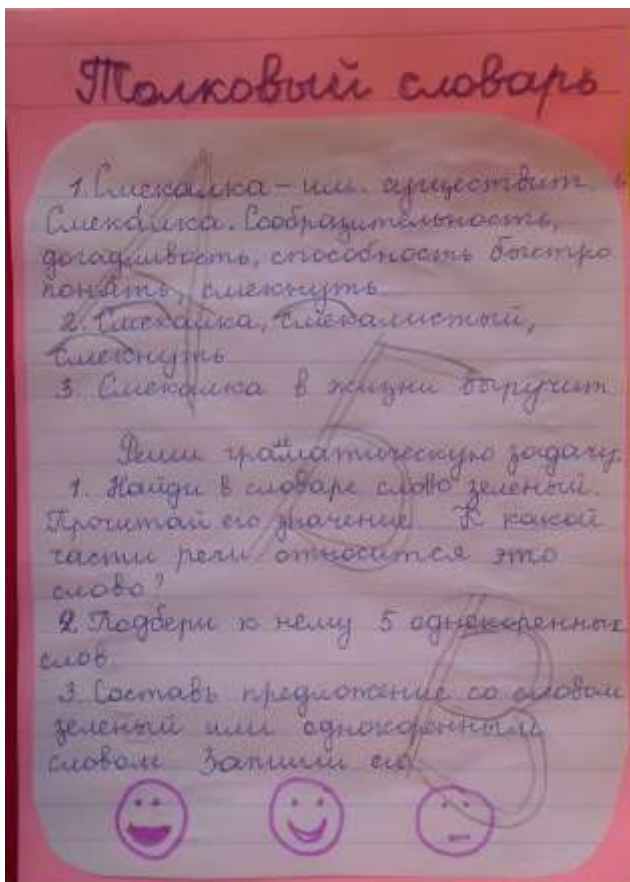 Толковый словарь
1. Смекалка – им. существит.
Смека́лка. Сообразительность,
догадливость, способность быстро
понять, смекнуть.
2. Смекалка, смекалистый,
смекнуть
3. Смекалка в жизни выручит
Реши граматическую задачу.
1. Найди в словаре слово зеленый.
Прочитай его значение. К какой
части речи относится это
слово?
2. Подбери к нему 5 однокоренных
слов.
3. Составь предложение со словом
зеленый или однокоренным
словом Запиши его.